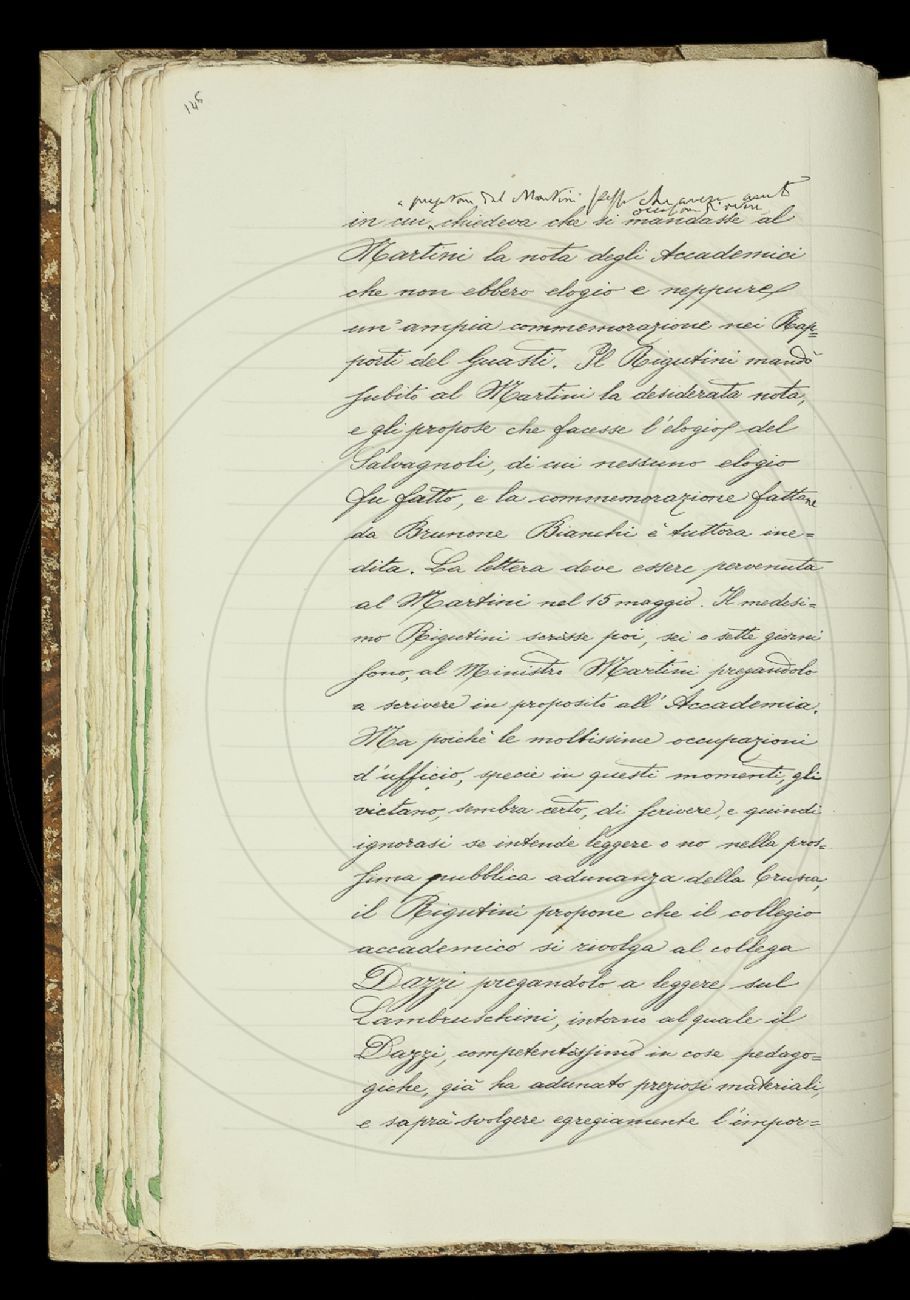 146
del Martini
in cui chiedeva che si mandasse al
Martini la nota degli Accademici
che non ebbero elogio e neppure
un'ampia commemorazione nei Rap=
porti del Guasti. Il Rigutini mandò
subito al Martini la desiderata nota,
e gli propose che facesse l'elogio del
Salvagnoli, di cui nessuno elogio
fu fatto, e la commemorazione fattane
da Brunone Bianchi è tuttora ine=
dita. La lettera deve essere pervenuta
al Martini nel 15 maggio. Il medesi=
mo Rigutini scrisse poi, sei o sette giorni
sono, al Ministro Martini pregandolo
a scrivere in proposito all'Accademia.
Ma poichè le moltissime occupazioni
d'ufficio, specie in questi momenti, gli
vietano, sembra certo, di scrivere, e quindi
ignorasi se intende leggere o no nella pros=
sima pubblica adunanza della Crusca,
il Rigutini propone che il collegio
accademico si rivolga al collega
Dazzi pregandolo a leggere sul
Lambruschini, intorno al quale il
Dazzi, competentissimo in cose pedago=
giche, già ha adunato preziosi materiali,
e saprà svolgere egregiamente l'impor=